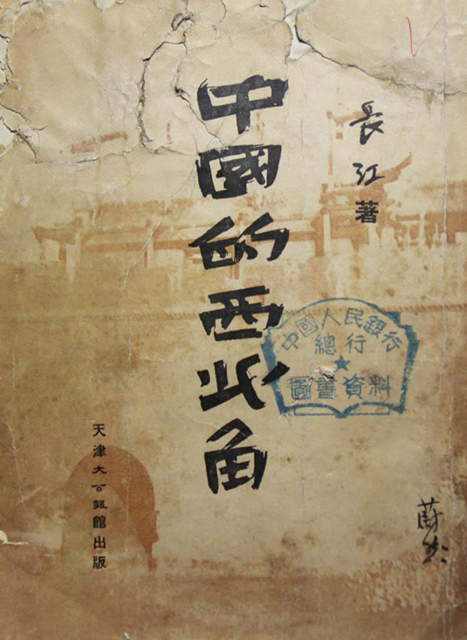 長江著
中國的西北角
中國人民銀行
總行
圖書資料
天津大公報館出版